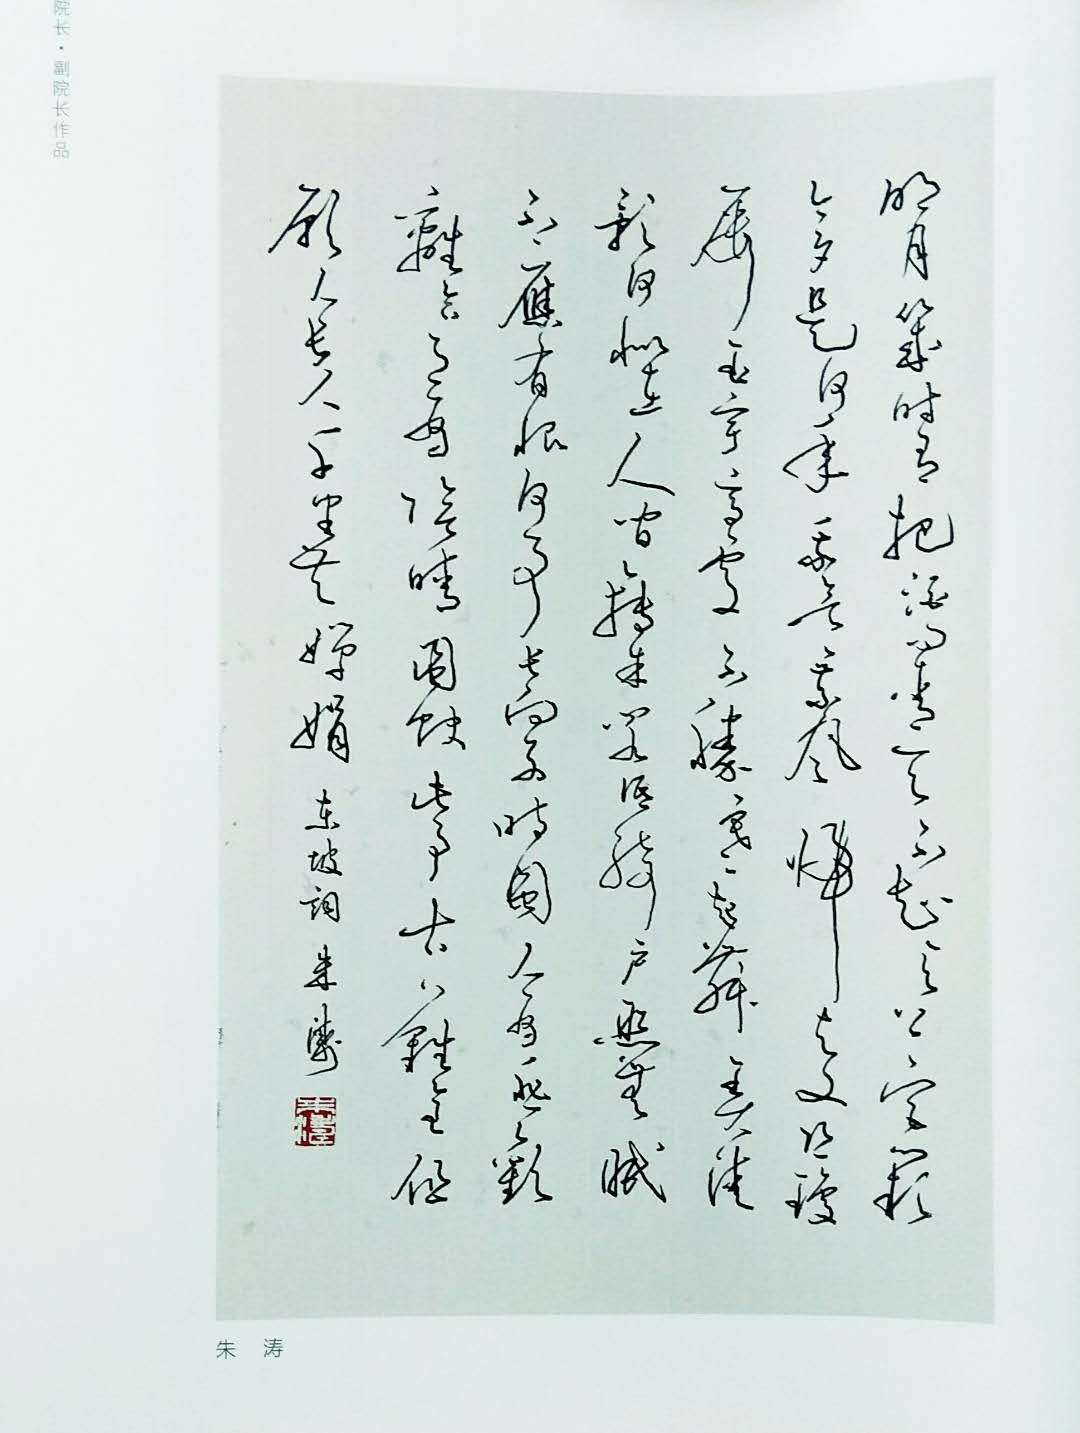 院长·副院长作品
明月幾时有把酒问青天不知天上宫阙
今夕是何年我欲乘风歸去又恐瓊
樓玉宇高處不勝寒起舞弄清
影何似在人間轉朱閣低綺户照無眠
不應有恨何事长向别時圆人有悲歡
離合月有陰晴圆缺此事古難全但
願人长久千里共嬋娟 东坡词 朱濤
朱濤
朱 涛